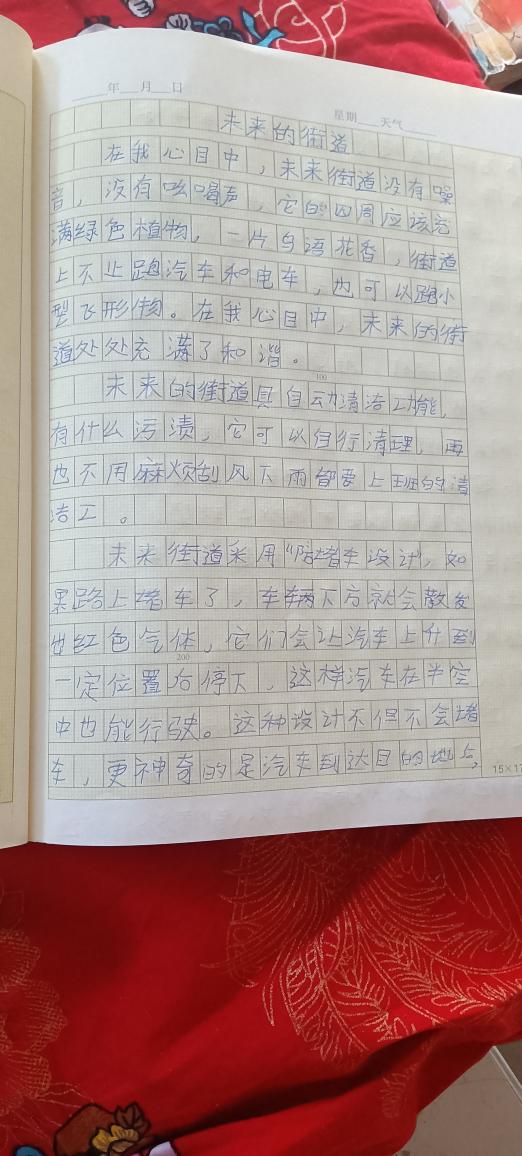 年 月 日
星期 天气
未来的街道
在我心目中，未来街道没有噪
音，没有吆喝声，它的四周应该充
满绿色植物，一片鸟语花香，街道
上不止跑汽车和电车，也可以跑小
型飞形物。在我心目中，未来的街
道处处充满了和谐。
100
未来的街道具自动清洁功能，
有什么污渍，它可以自行清理，再
也不用麻烦刮风下雨都要上班的清
洁工。
未来街道采用“防堵车设计”，如
果路上堵车了，车辆下方就会散发
出红色气体，它们会让汽车上升到
200
一定位置后停下，这样汽车在半空
中也能行驶。这种设计不但不会堵
车，更神奇的是汽车到达目的地点，
15×17